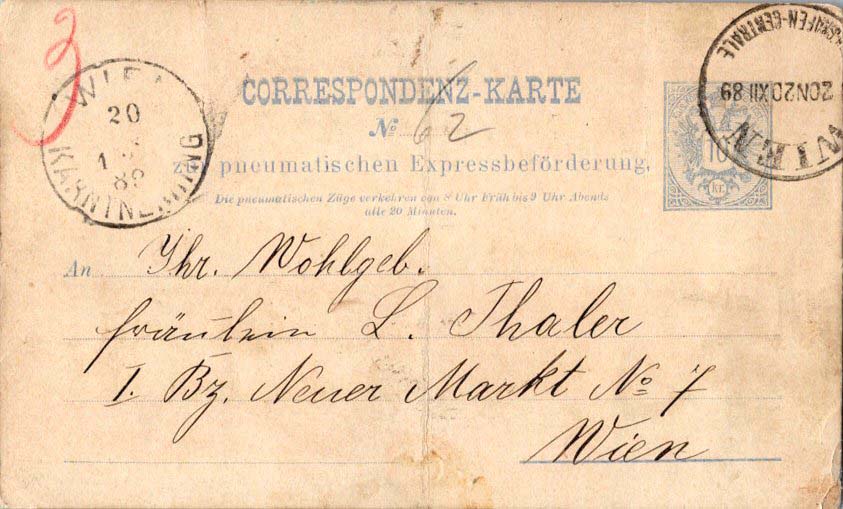 3
CORRESPONDENZ-KARTE
No 62
zur pneumatischen Expressbeförderung.
Die pneumatischen Züge verkehren von 8 Uhr Früh bis 9 Uhr Abends
alle 20 Minuten.
WIEN
20
89
KÄRNTNERRING
CENTRALE
20N20 XII 89
WIEN
10
kr.
An Ihr. Wohlgeb.
Fräulein L. Thaler
I. Bz. Neuer Markt No 7
Wien